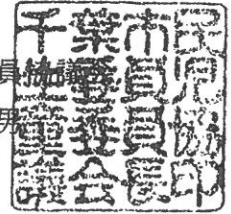 員
男
千葉市民
生委員児
童委員協
議会長印